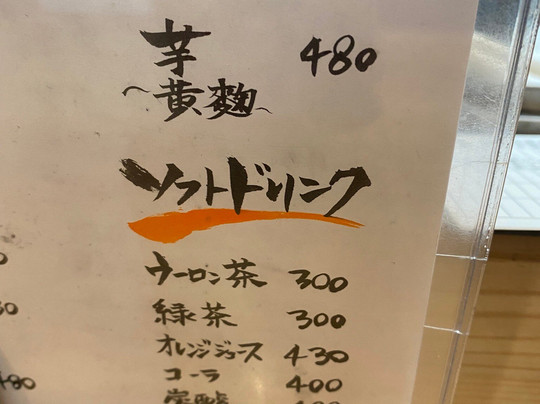 芋 480
～黄麹～
ソフトドリンク
ウーロン茶 300
緑茶 300
オレンジジュース 430
コーラ 400
480